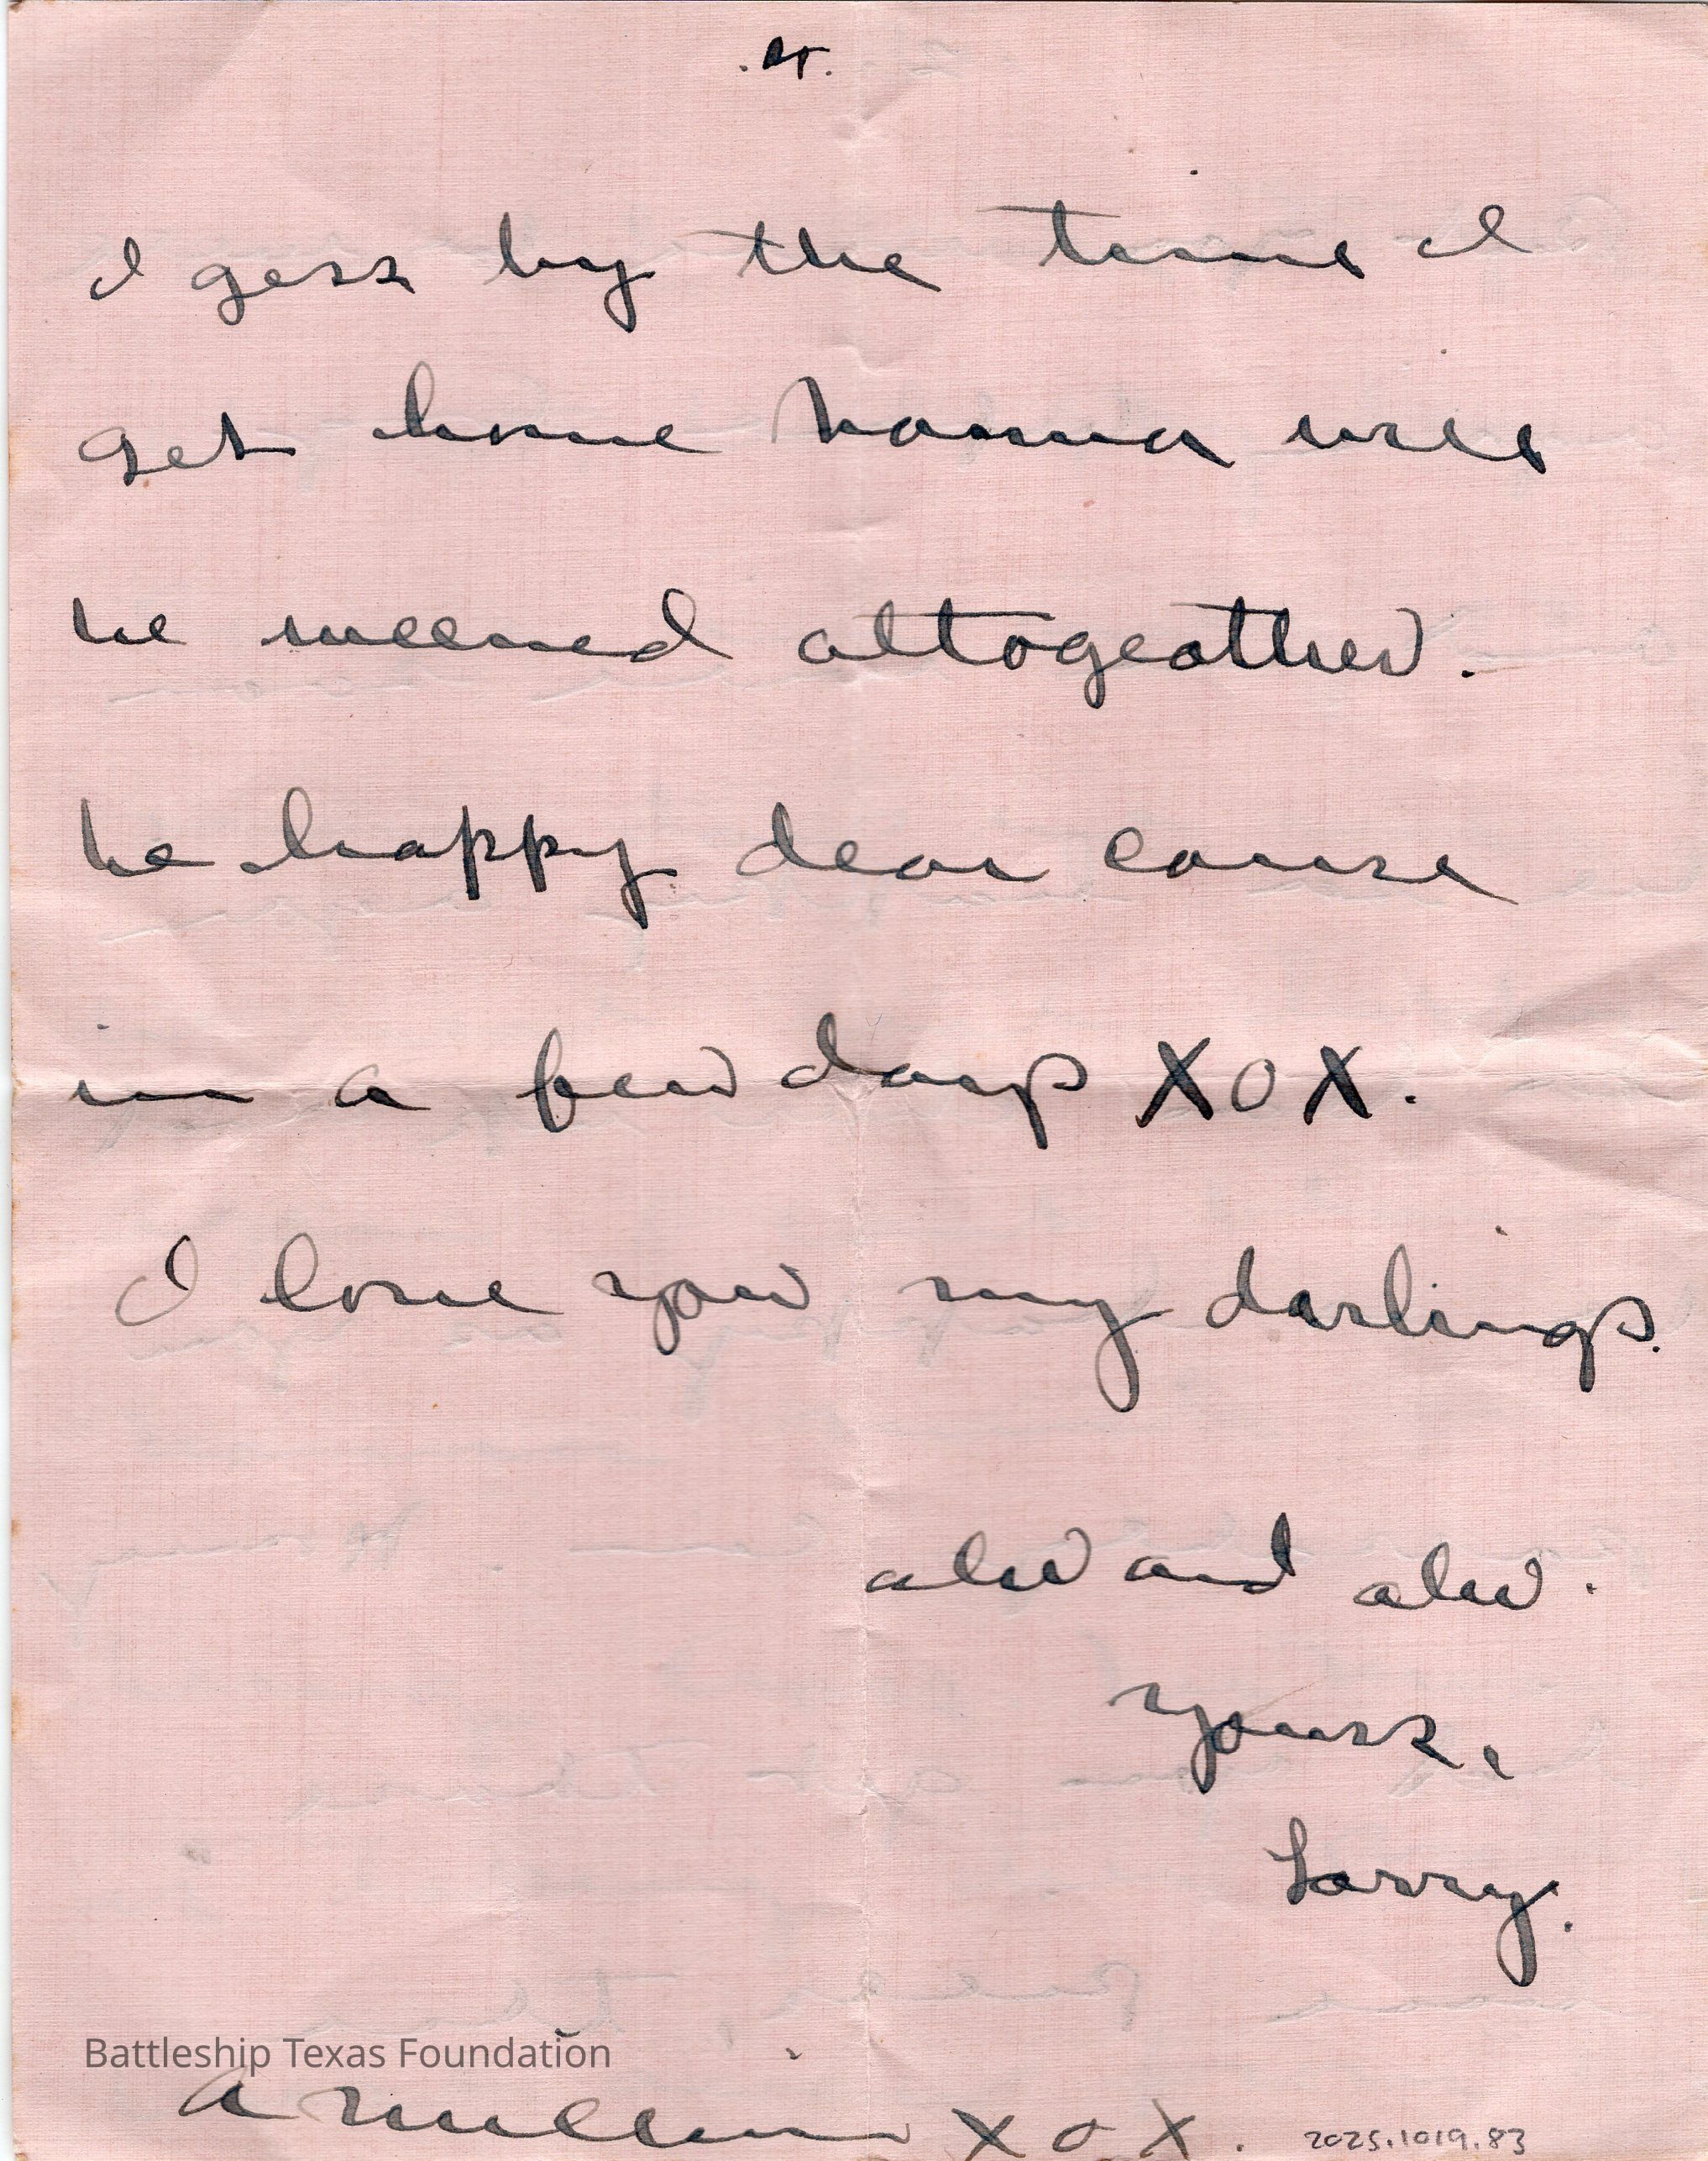 . 4 .
I gess by the time I
get home Nonna will
be weened altogeather.
be happy dear cause
in a few days XOX.
I love you my darlings.
alw and alw.
yours,
Larry.
Battleship Texas Foundation
a million XOX. 2025.1019.83